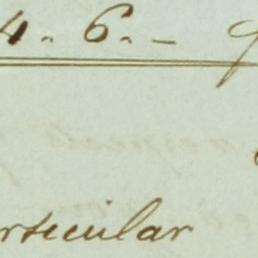 4. 6. –
rticular